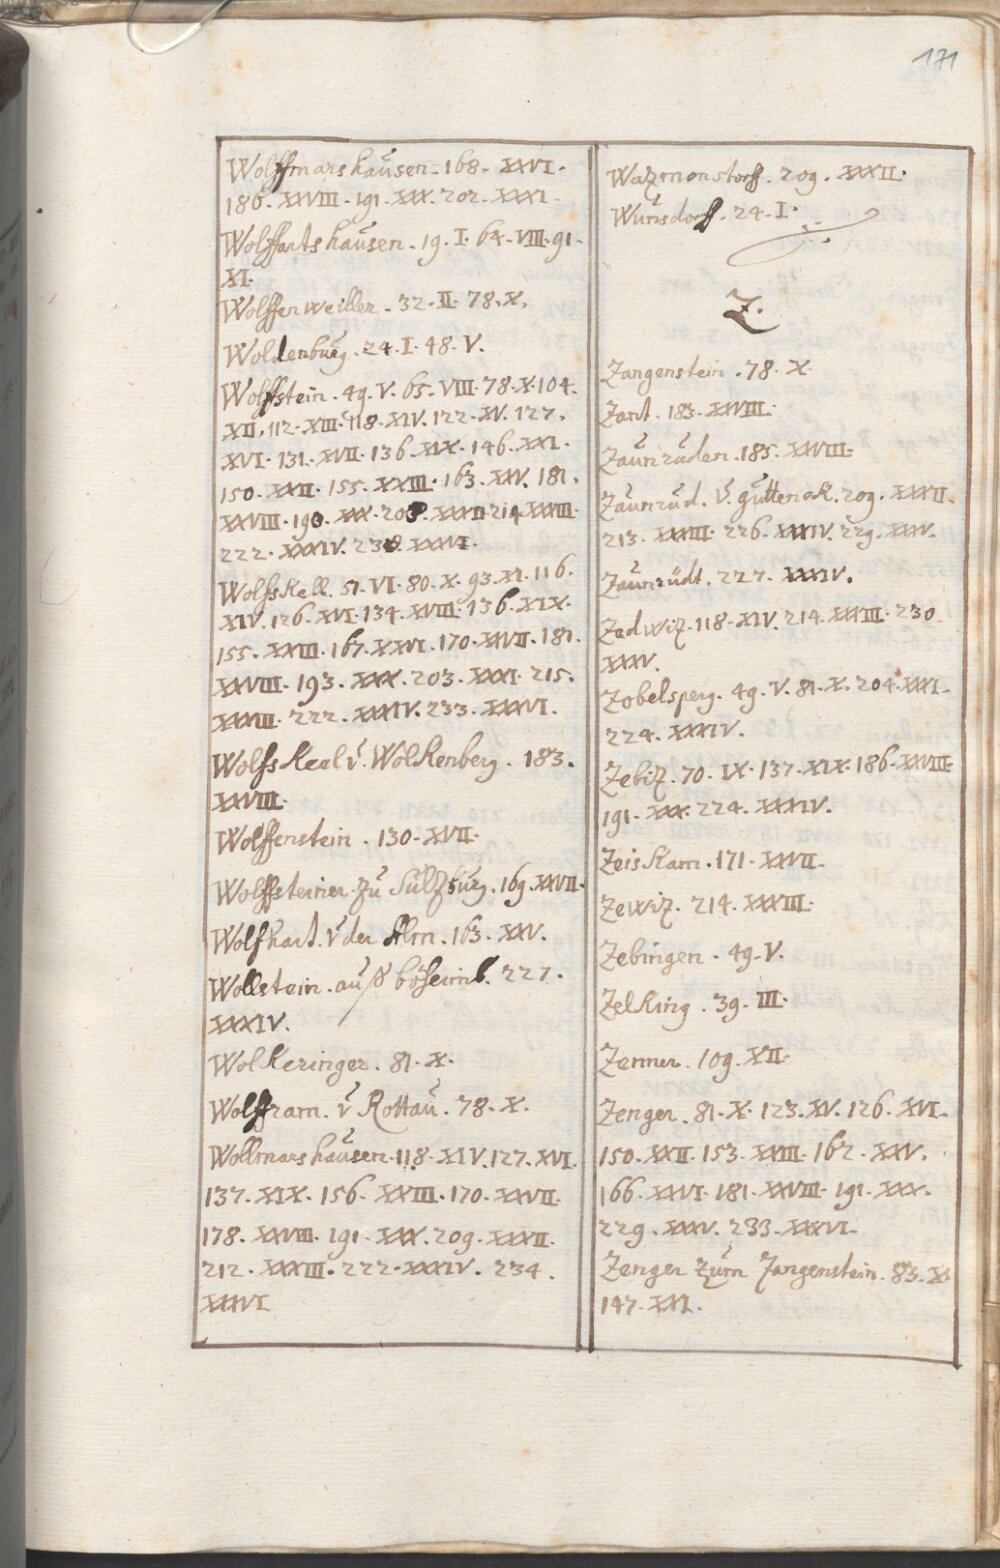 171
Wolffmarshaŭsen. 168. XXVI.
186. XXVIII. 191. XXX. 202. XXXI.
Wolffartshaŭsen. 19. I. 64. VIII. 91.
XI.
Wolffenweiller. 32. II. 78. X.
Woldenbŭrg. 24. I. 48. V.
Wolffstein. 49. V. 65. VIII. 78. X. 104.
XII. 112. XIII. 118. XIV. 122. XV. 127.
XVI. 131. XVII. 136. XIX. 146. XXI.
150. XXII. 155. XXIII. 163. XXV. 181.
XXVIII. 190. XXX. 208. XXXII. 214. XXXIII.
222. XXXIV. XXXVI.
Wolfskell. 51. VI. 80. X. 93. XI. 116.
XIV. 126. XVI. 134. XVIII. 136. XIX.
155. XXIII. 167. XXVI. 170. XXVII. 181.
XXVIII. 193. XXX. 203. XXXI. 215.
XXXIII. 222. XXXIV. 233. XXXVI.
Wolfskeel v̆. Wolkenberg. 183.
XXVIII.
Wolffenstein. 130. XVII.
Wolffsteiner zŭ Sŭlzbŭrg. 169. XXVII.
Wolfhart. v̆ der Alm. 163. XXV.
Wollstein. aŭß böheimb. 227.
XXXIV.
Wolkeringer. 81. X.
Wolffram. v̆ Rottaŭ. 78. X.
Wollmarshaŭsen. 118. XIV. 127. XVI.
137. XIX. 156. XXIII. 170. XXVII.
178. XXVIII. 191. XXX. 209. XXXII.
212. XXXIII. 222. XXXIV. 234.
XXXVI
Wazmonstorff. 209. XXXII.
Wŭrnsdorf. 24. I.
Z.
Zangenstein. 78. X.
Zant. 183. XXVIII.
Zaŭnrŭden. 185. XXVIII.
Zaŭnrŭd. v̆. gŭtteneck. 209. XXXII.
213. XXXIII. 226. XXXIV. 229. XXXV.
Zaŭnrŭdt. 227. XXXIV.
Zedwiz. 118. XIV. 214. XXXIII. 230.
XXXV.
Zobelsperg. 49. V. 81. X. 204. XXXI.
224. XXXIV.
Zebiz. 70. IX. 137. XIX. 186. XXVIII.
191. XXX. 224. XXXIV.
Zeiskam. 171. XXVII.
Zewiz. 214. XXXIII.
Zebingen. 49. V.
Zelking. 39. III.
Zenner. 109. XII.
Zenger. 81. X. 123. XV. 126. XVI.
150. XXII. 153. XXIII. 162. XXV.
166. XXVI. 181. XXVIII. 191. XXX.
229. XXXV. 233. XXXVI.
Zenger zŭm Zangenstein. 83. X.
147. XXI.